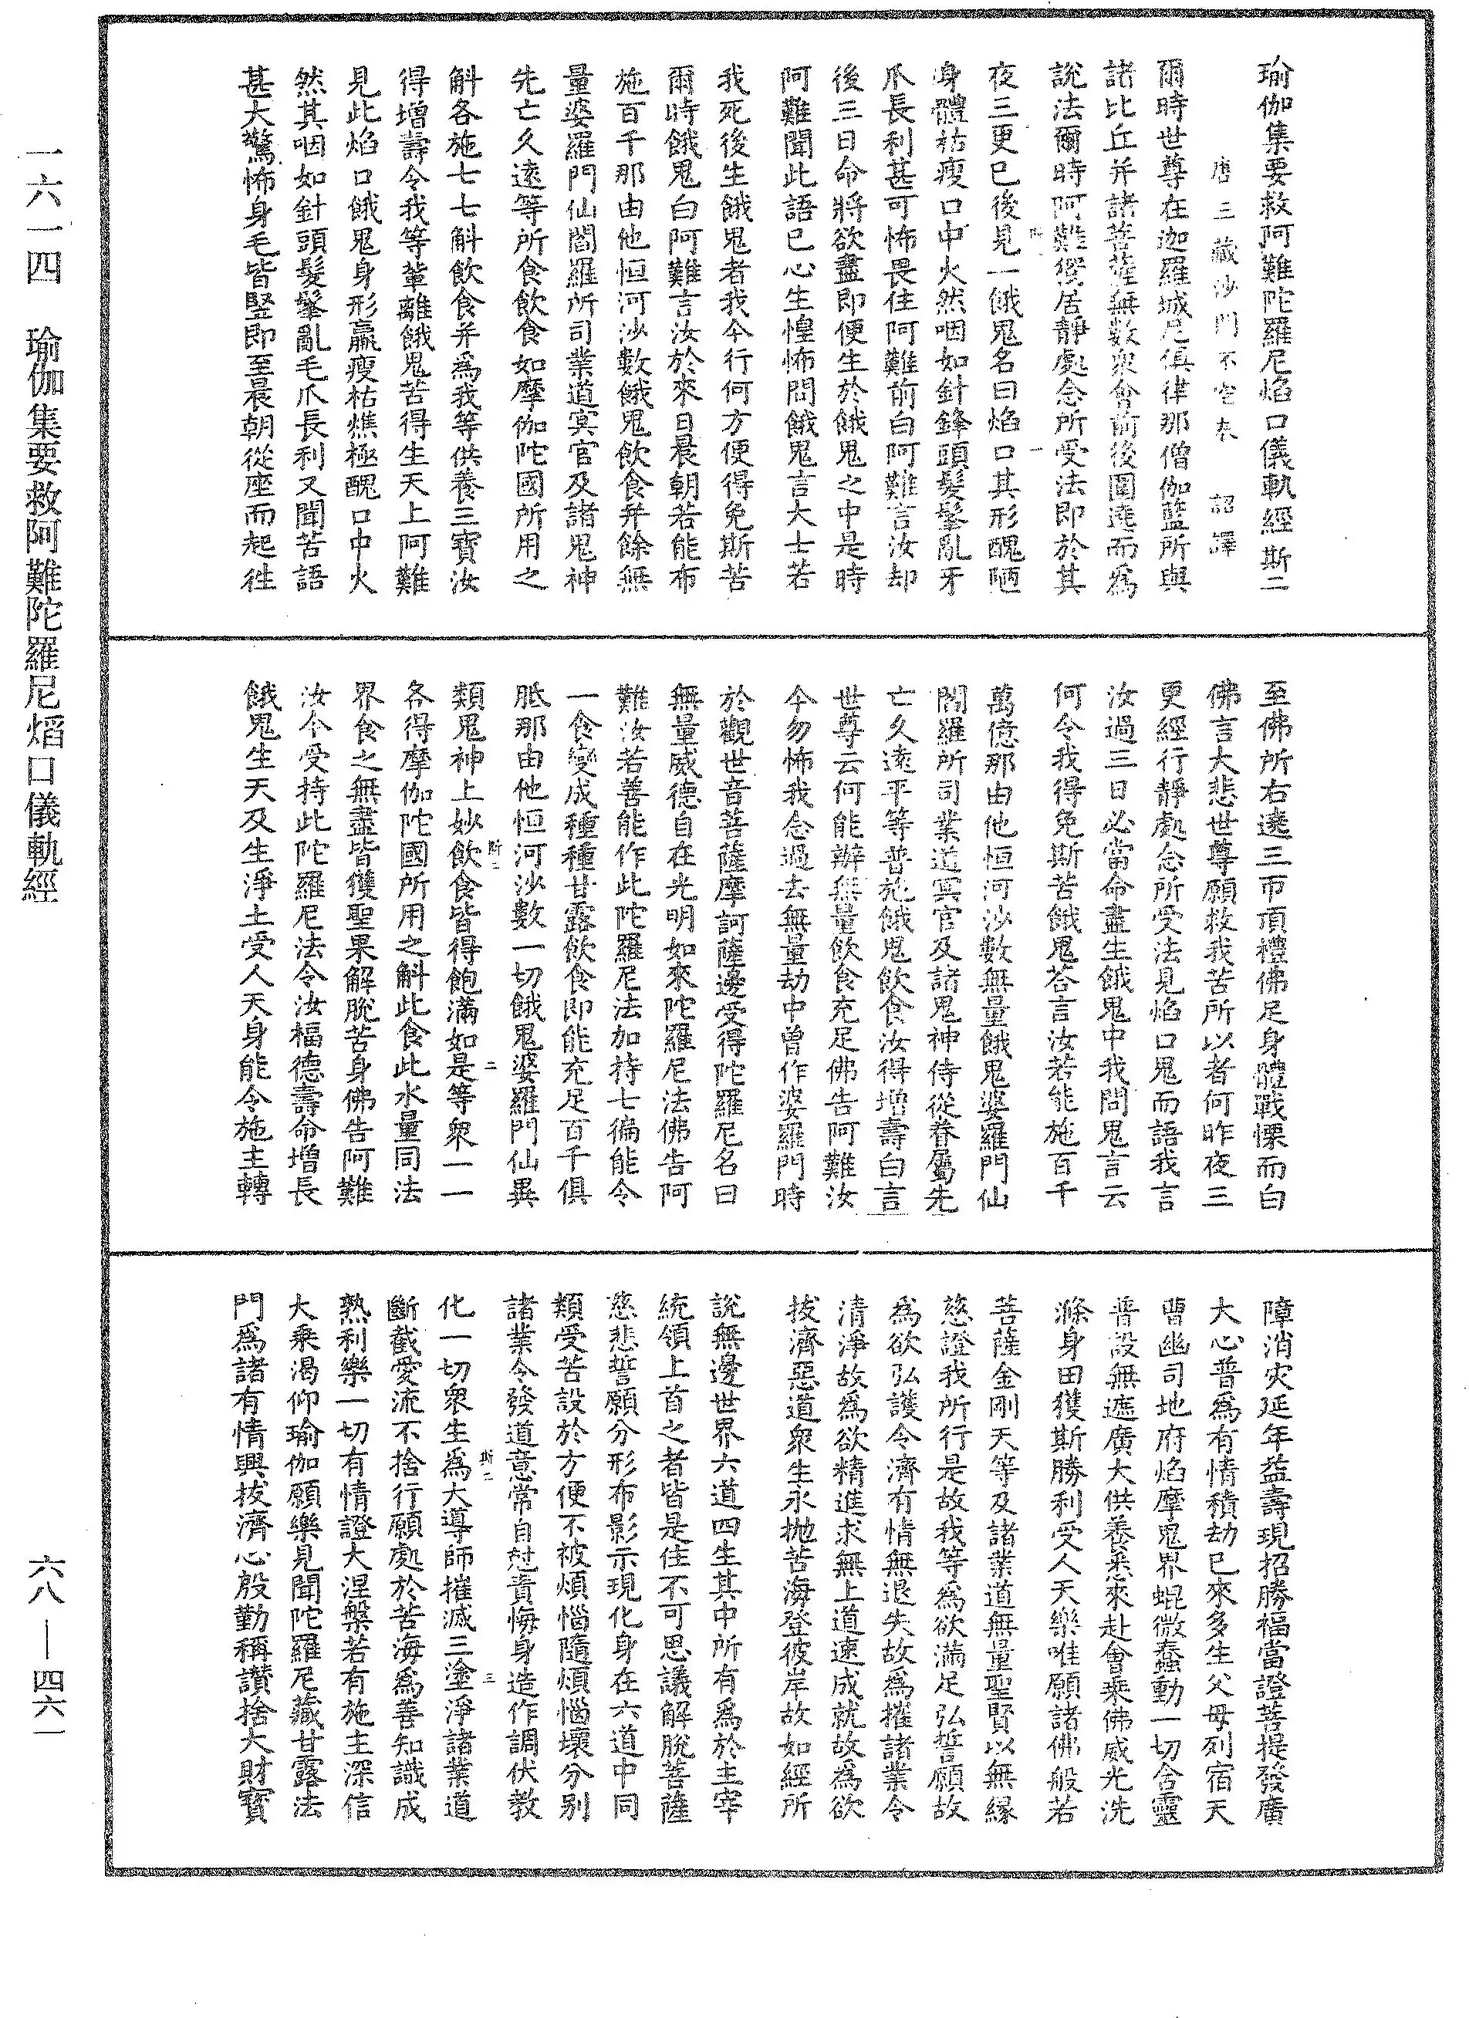 瑜伽集要救阿難陀羅尼焰口儀軌經 斯二
唐三藏沙門不空奉 詔譯
爾時世尊在迦羅城尼俱律那僧伽藍所與
諸比丘并諸菩薩無數衆會前後圍遶而爲
說法爾時阿難獨居靜處念所受法即於其
夜三更已後見一餓鬼名曰焰口其形醜陋
身體枯瘦口中火然咽如針鋒頭髮髼亂牙
爪長利甚可怖畏住阿難前白阿難言汝却
後三日命將欲盡即便生於餓鬼之中是時
阿難聞此語已心生惶怖問餓鬼言大士若
我死後生餓鬼者我今行何方便得免斯苦
爾時餓鬼白阿難言汝於來日晨朝若能布
施百千那由他恒河沙數餓鬼飲食并餘無
量婆羅門仙閻羅所司業道冥官及諸鬼神
先亡久遠等所食飲食如摩伽陀國所用之
斛各施七七斛飲食并爲我等供養三寶汝
得增壽令我等輩離餓鬼苦得生天上阿難
見此焰口餓鬼身形羸瘦枯燋極醜口中火
然其咽如針頭髮髼亂毛爪長利又聞苦語
甚大驚怖身毛皆竪即至晨朝從座而起往
至佛所右遶三帀頂禮佛足身體戰慄而白
佛言大悲世尊願救我苦所以者何昨夜三
更經行靜處念所受法見焰口鬼而語我言
汝過三日必當命盡生餓鬼中我問鬼言云
何令我得免斯苦餓鬼答言汝若能施百千
萬億那由他恒河沙數無量餓鬼婆羅門仙
閻羅所司業道冥官及諸鬼神侍從眷屬先
亡久遠平等普施餓鬼飲食汝得增壽白言
世尊云何能辦無量飲食充足佛告阿難汝
今勿怖我念過去無量劫中曾作婆羅門時
於觀世音菩薩摩訶薩邊受得陀羅尼名曰
無量威德自在光明如來陀羅尼法佛告阿
難汝若善能作此陀羅尼法加持七徧能令
一食變成種種甘露飲食即能充足百千俱
胝那由他恒河沙數一切餓鬼婆羅門仙異
斯二 二
類鬼神上妙飲食皆得飽滿如是等衆一一
各得摩伽陀國所用之斛此食此水量同法
界食之無盡皆獲聖果解脫苦身佛告阿難
汝今受持此陀羅尼法令汝福德壽命增長
餓鬼生天及生淨土受人天身能令施主轉
障消災延年益壽現招勝福當證菩提發廣
大心普爲有情積劫已來多生父母列宿天
曹幽司地府焰摩鬼界蜫微蠢動一切含靈
普設無遮廣大供養悉來赴會乘佛威光洗
滌身田獲斯勝利受人天樂唯願諸佛般若
菩薩金剛天等及諸業道無量聖賢以無緣
慈證我所行是故我等爲欲滿足弘誓願故
爲欲弘護令濟有情無退失故爲摧諸業令
清淨故爲欲精進求無上道速成就故爲欲
拔濟惡道衆生永拋苦海登彼岸故如經所
說無邊世界六道四生其中所有爲於主宰
統領上首之者皆是住不可思議解脫菩薩
慈悲誓願分形布影示現化身在六道中同
類受苦設於方便不被煩惱隨煩惱壞分別
諸業令發道意常自尅責悔身造作調伏教
斯二 三
化一切衆生爲大導師摧滅三塗淨諸業道
斷截愛流不捨行願處於苦海爲善知識成
熟利樂一切有情證大涅槃若有施主深信
大乘渴仰瑜伽願樂見聞陀羅尼藏甘露法
門爲諸有情興拔濟心殷勤稱讚捨大財寶
一六一四 瑜伽集要救阿難陀羅尼焰口儀軌經
六八—四六一